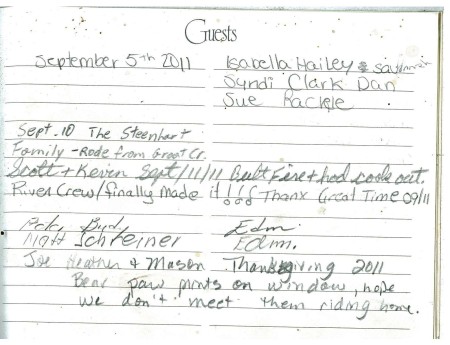 Guests
September 5th 2011 Isabella Hailey & Savannah
Syndi Clark Dan
Sue Rackle
Sept. 10 The Steenhart
Family - Rode from Groat Cr.
Scott + Keven Sept/11/11 Built Fire + had cook out.
River Crew/finally made it!!! Thanx Great Time 09/11
Edm.
Matt Schreiner Edm.
Joe Heather & Mason Thanksgiving 2011
Bear paw prints on window, hope
we don't meet them riding home.